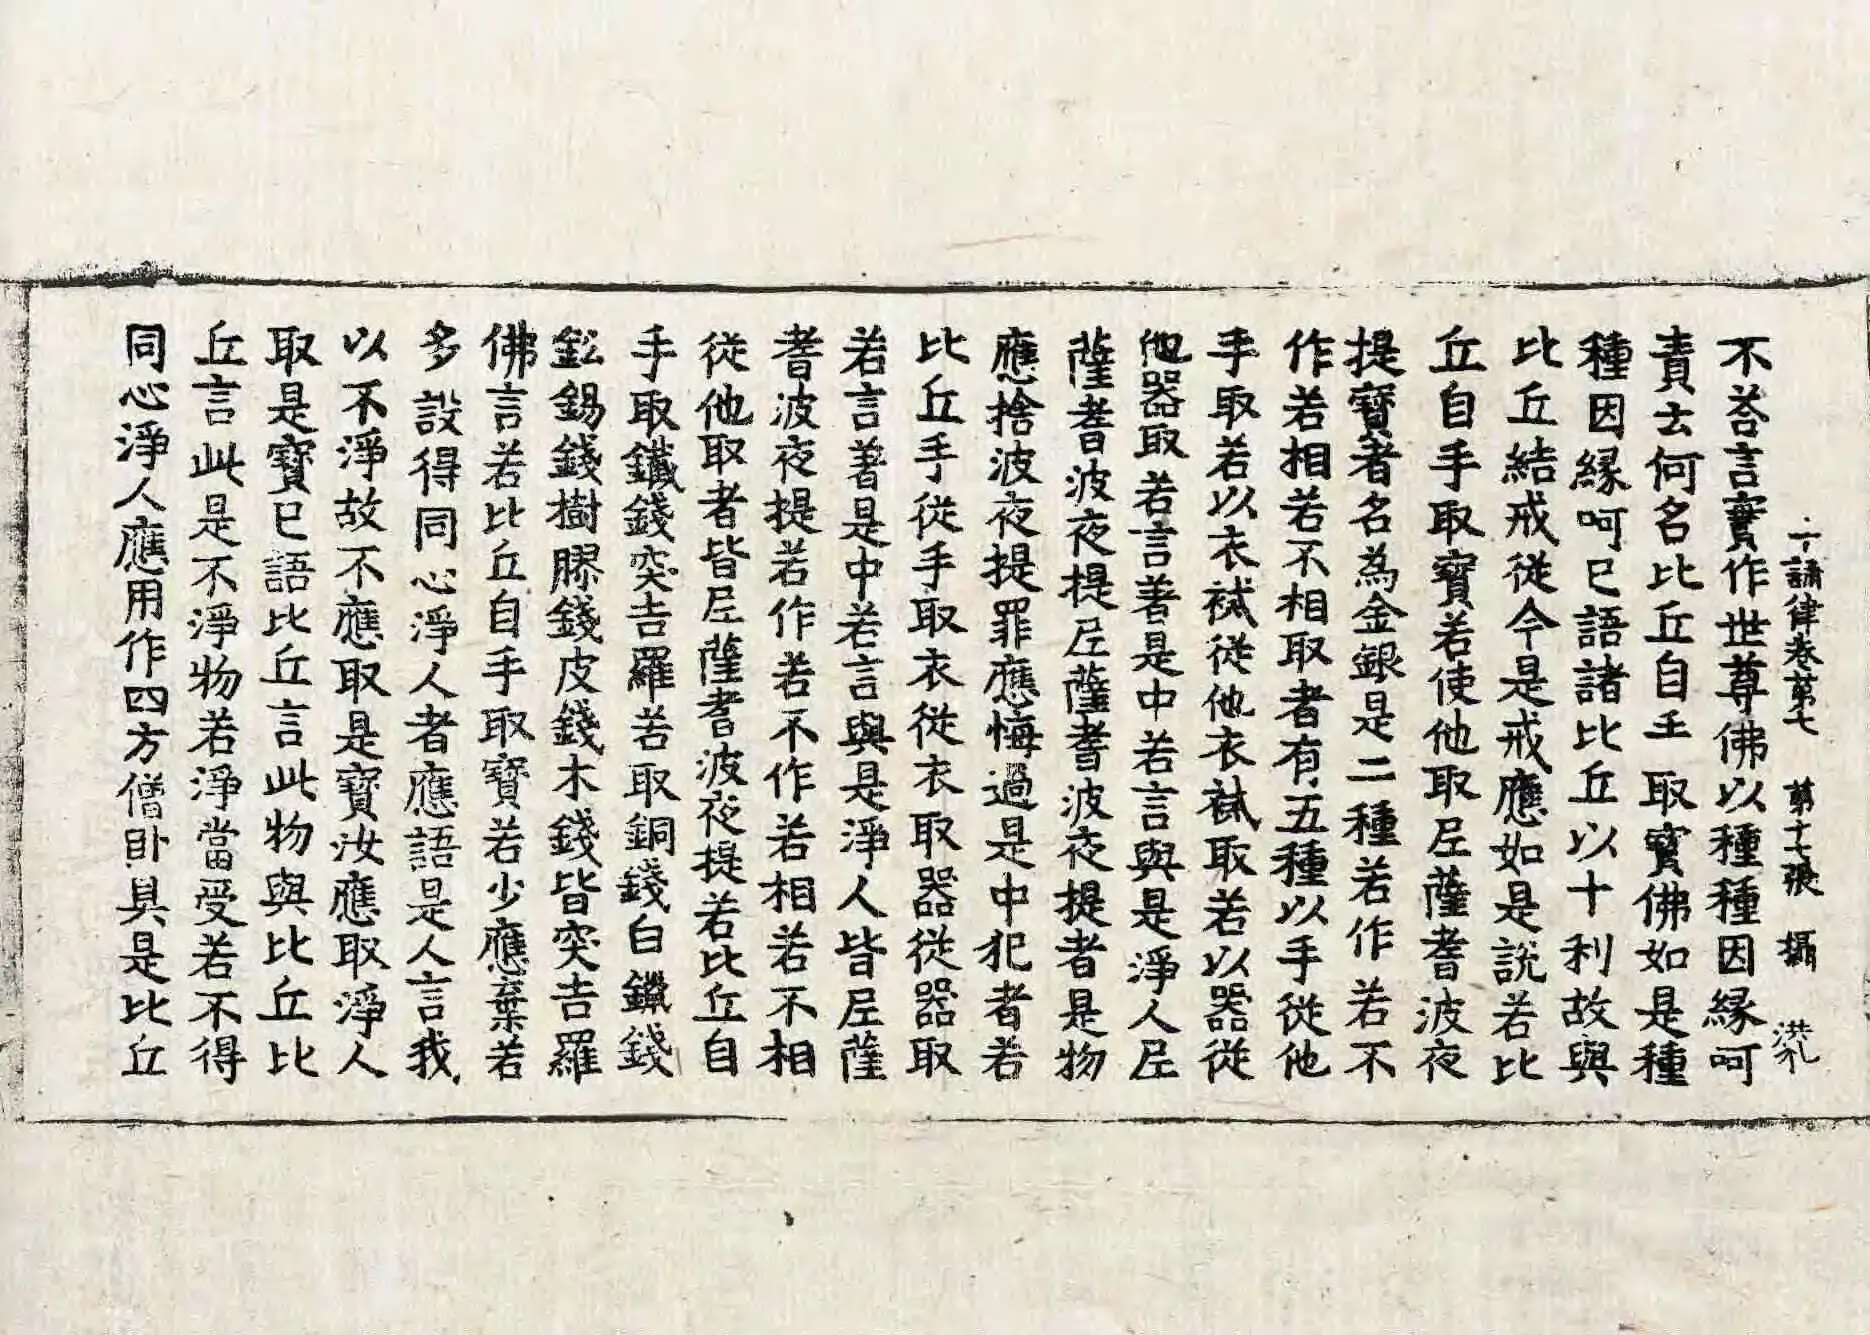 十誦律卷第七　第十七張　攝　洪永
不荅言實作世尊佛以種種因緣呵
責云何名比丘自手取寶佛如是種
種因緣呵已語諸比丘以十利故與
比丘結戒從今是戒應如是說若比
丘自手取寶若使他取尼薩耆波夜
提寶者名為金銀是二種若作若不
作若相若不相取者有五種以手從他
手取若以衣裓從他衣裓取若以器從
他器取若言著是中若言與是淨人尼
薩耆波夜提尼薩耆波夜提者是物
應捨波夜提罪應悔過是中犯者若
比丘手從手取衣從衣取器從器取
若言著是中若言與是淨人皆尼薩
耆波夜提若作若不作若相若不相
從他取者皆尼薩耆波夜提若比丘自
手取鐵錢突吉羅若取銅錢白鑞錢
鉛錫錢樹膠錢皮錢木錢皆突吉羅
佛言若比丘自手取寶若少應棄若
多設得同心淨人者應語是人言我
以不淨故不應取是寶汝應取淨人
取是寶已語比丘言此物與比丘比
丘言此是不淨物若淨當受若不得
同心淨人應用作四方僧卧具是比丘